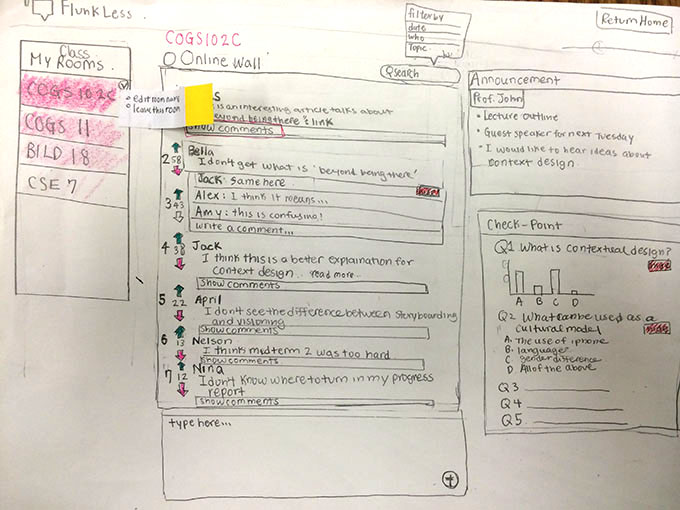 FlunkLess
Return Home
filter by
date
who
Topic
Class
My Rooms
COGS 102C
COGS 11
BILD 18
CSE 7
• edit room ours
• leave this room
COGS102C
Online Wall
Search
is an interesting article talks about
beyond being there & link
Show comments
2 58 Bella
I don't get what is 'beyond being there'
Jack: same here
3 43 Alex: I think it means...
Amy: this is confusing!
write a comment...
4 38 Jack
I think this is a better explaination for
context design... read more...
Show comments
5 22 April
I don't see the difference between storyboarding
and visioning
Show comments
6 13 Nelson
I think midterm 2 was too hard
Show comments
7 12 Nina
I don't know where to turn in my progress
report
Show comments
type here...
Announcement
Prof. John
• Lecture outline
• Guest speaker for next Tuesday
• I would like to hear ideas about
context design.
Check-Point
Q1 What is contextual design?
A B C D
Q2 What can be used as a
cultural model
A. the use of iphone
B. languages
C gender difference
D. All of the above
Q3
Q4
Q5.